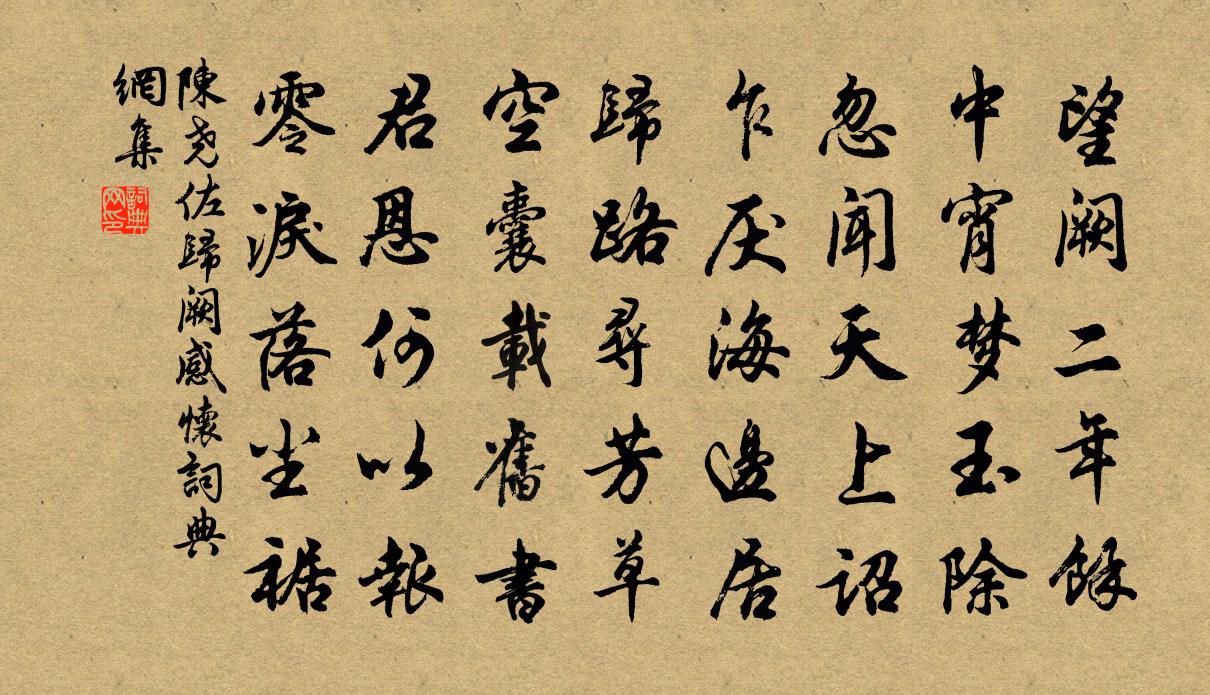 望阙二年餘
中宵梦玉除
忽闻天上诏
乍厌海邊居
歸路尋芳草
空囊載舊書
君恩何以報
零淚落尘裾
陳尧佐歸阙感懷詞典
網集
詞典
网印